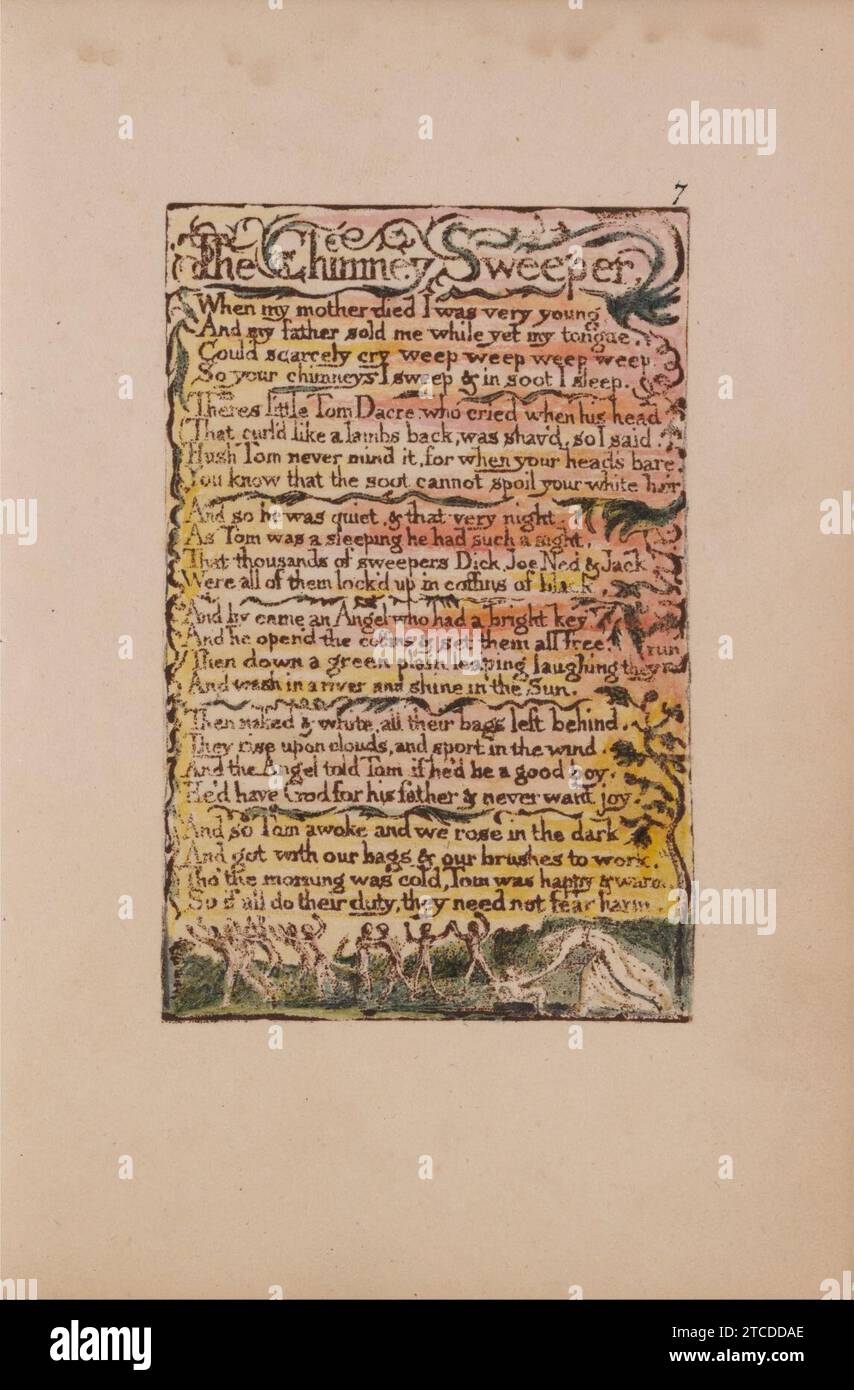 7
The Chimney Sweeper
When my mother died I was very young
And my father sold me while yet my tongue.
Could scarcely cry weep weep weep weep.
So your chimneys I sweep & in soot I sleep.
Theres little Tom Dacre, who cried when his head
That curl'd like a lambs back, was shav'd, so I said.
Hush Tom never mind it, for when your head's bare,
You know that the soot cannot spoil your white hair
And so he was quiet, & that very night.
As Tom was a sleeping he had such a sight.
That thousands of sweepers Dick, Joe, Ned & Jack
Were all of them lock'd up in coffins of black,
And by came an Angel who had a bright key
And he open'd the coffins & set them all free.
Then down a green plain leaping laughing they run
And wash in a river and shine in the Sun.
Then naked & white, all their bags left behind.
They rise upon clouds, and sport in the wind.
And the Angel told Tom, if he'd be a good boy,
He'd have God for his father & never want joy.
And so Tom awoke and we rose in the dark
And got with our bags & our brushes to work.
Tho' the morning was cold, Tom was happy & warm.
So if all do their duty, they need not fear harm.
alamy
alamy
alamy
a
a
a
a
a
a
a
a
a
a
alamy
Image ID: 2TCDDAE
www.alamy.com